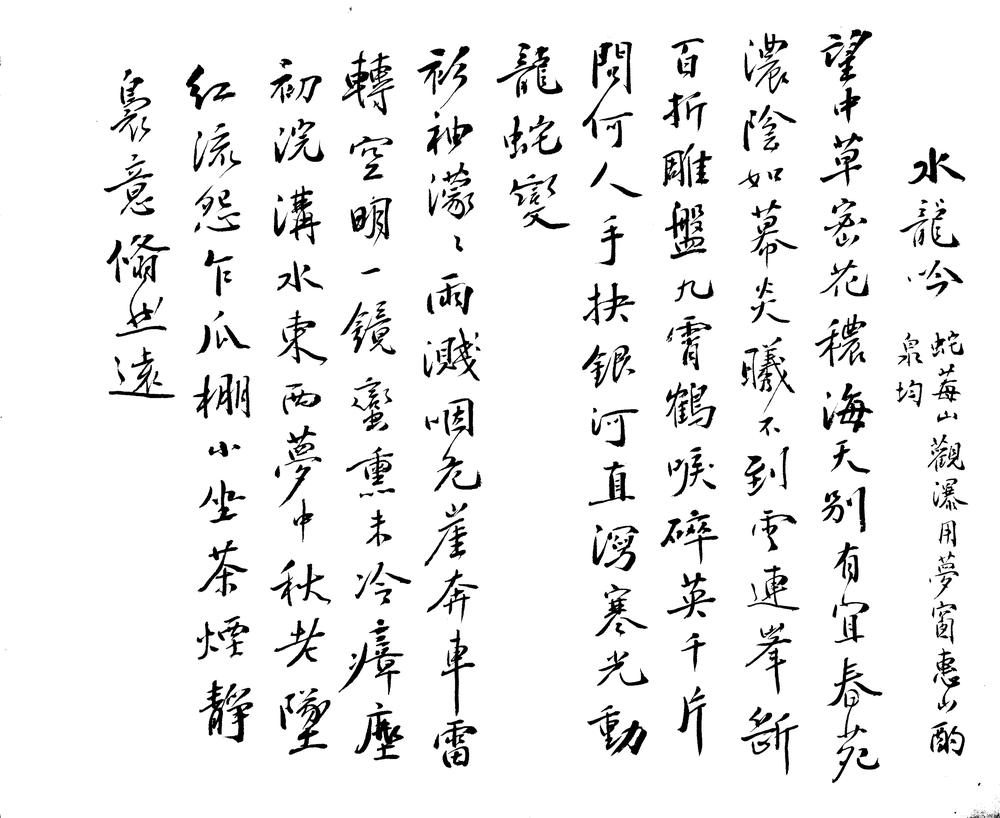 水龍吟 蛇莓山觀瀑用夢窗惠山酌
泉均
望中草密花穠海天別有宜春苑
濃陰如幕炎曦不到雲連峯斷
百折雕盤九霄鶴唳碎英千片
問何人手抉銀河直瀉寒光動
龍蛇變
衫袖濛〻雨濺咽危崖奔車雷
轉空明一鏡蠻熏未冷瘴塵
初浣溝水東西夢中秋老墜
紅流怨乍瓜棚小坐茶煙靜
裊意翛然遠